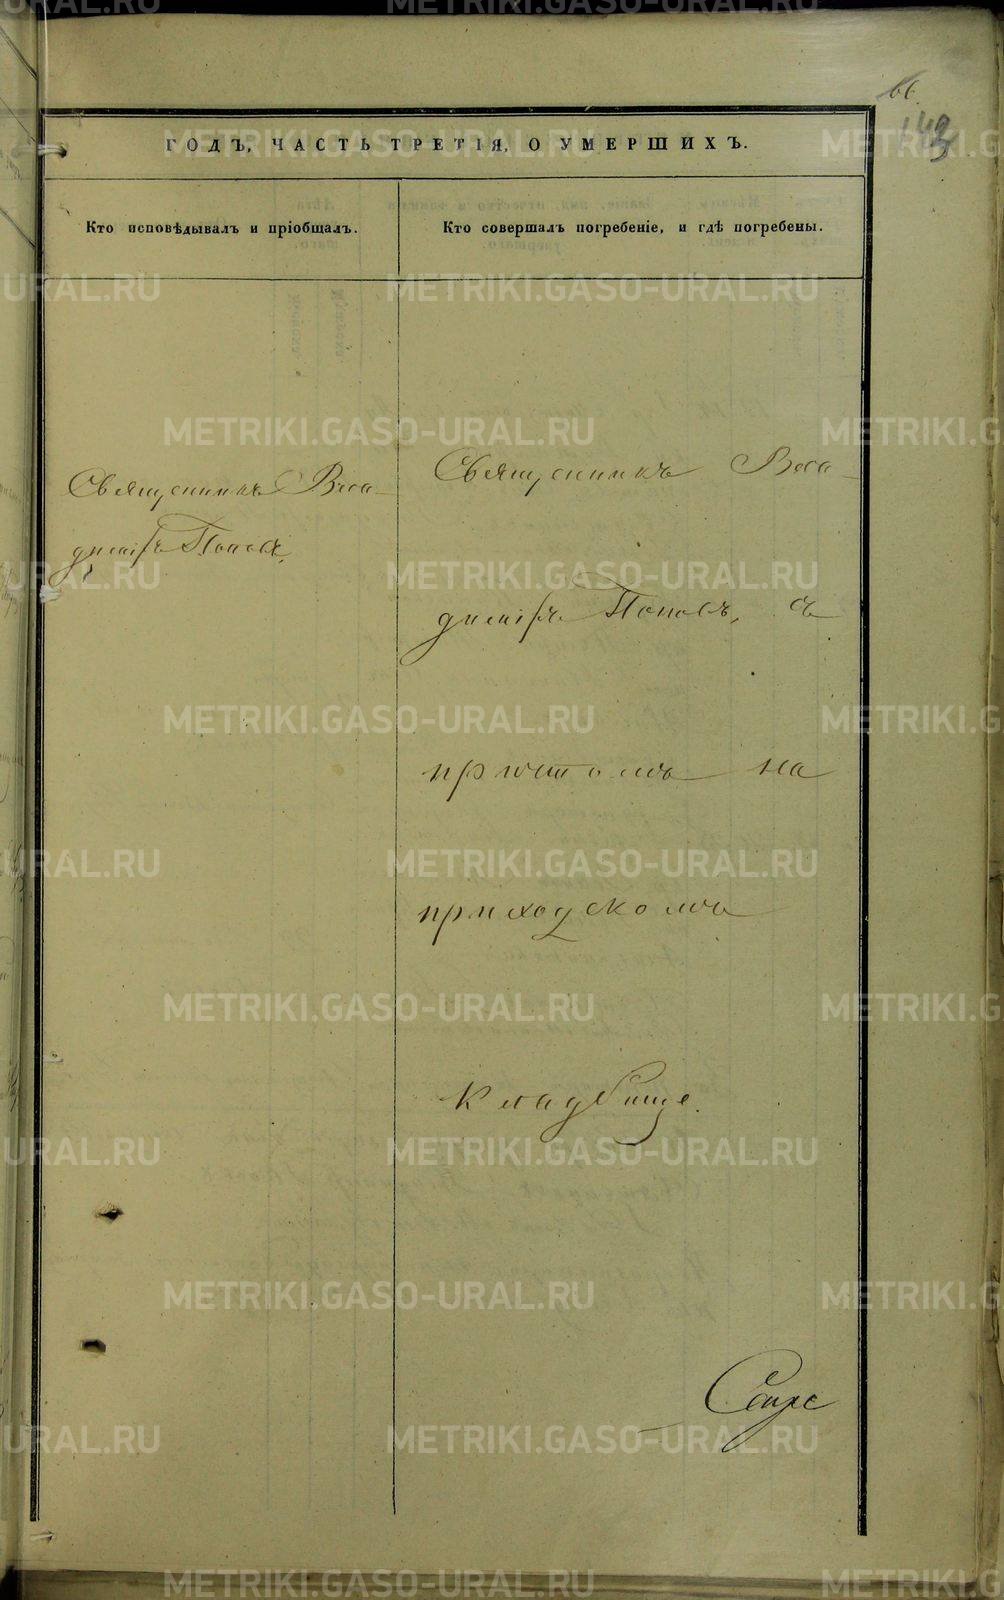 66.
143
ГОДЪ, ЧАСТЬ ТРЕТІЯ, О УМЕРШИХЪ.
Кто исповѣдывалъ и пріобщалъ.
Кто совершалъ погребеніе, и гдѣ погребены.
Священникъ Вла-
диміръ Поповъ,
Священникъ Вла-
диміръ Поповъ, съ
причтомъ на
приходскомъ
кладбище.
METRIKI.GASO-URAL.RU